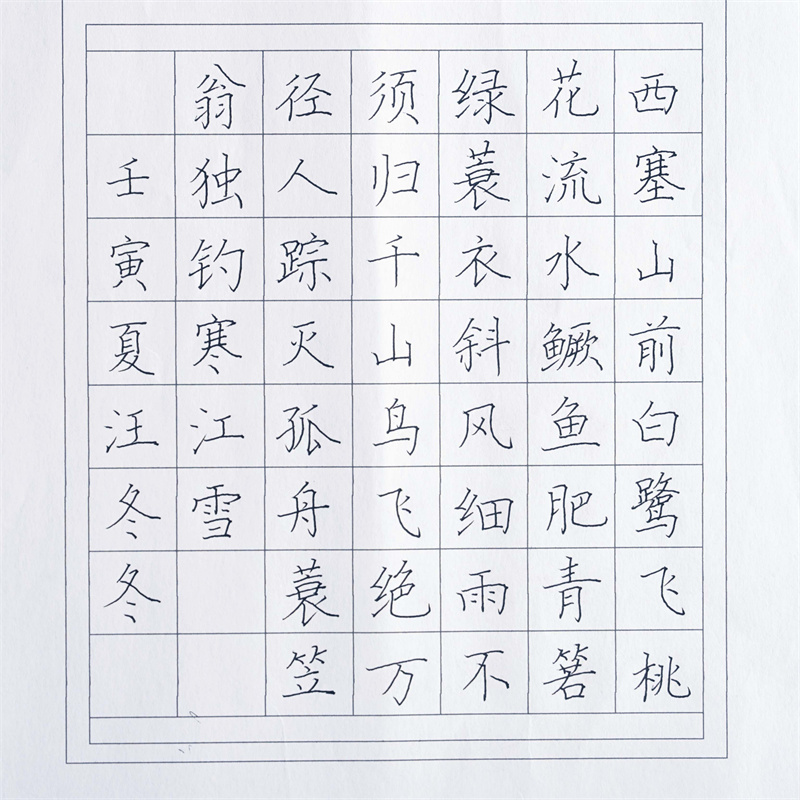 西塞山前白鹭飞桃
花流水鳜鱼肥青箬
绿蓑衣斜风细雨不
须归千山鸟飞绝万
径人踪灭孤舟蓑笠
翁独钓寒江雪
壬寅夏汪冬冬